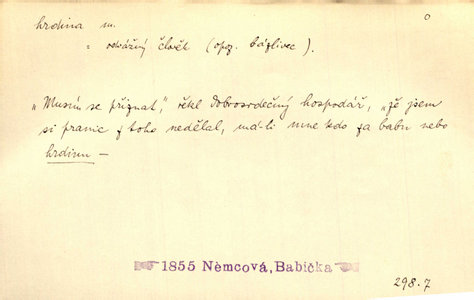 hrdina m. o
= odvážný člověk (opoz. bázlivec).
„Musím se přiznat," řekl dobrosrdečný hospodář, „že jsem
si pranic z toho nedělal, má-li mne kdo za babu nebo
hrdinu –
1855 Němcová, Babička
298.7